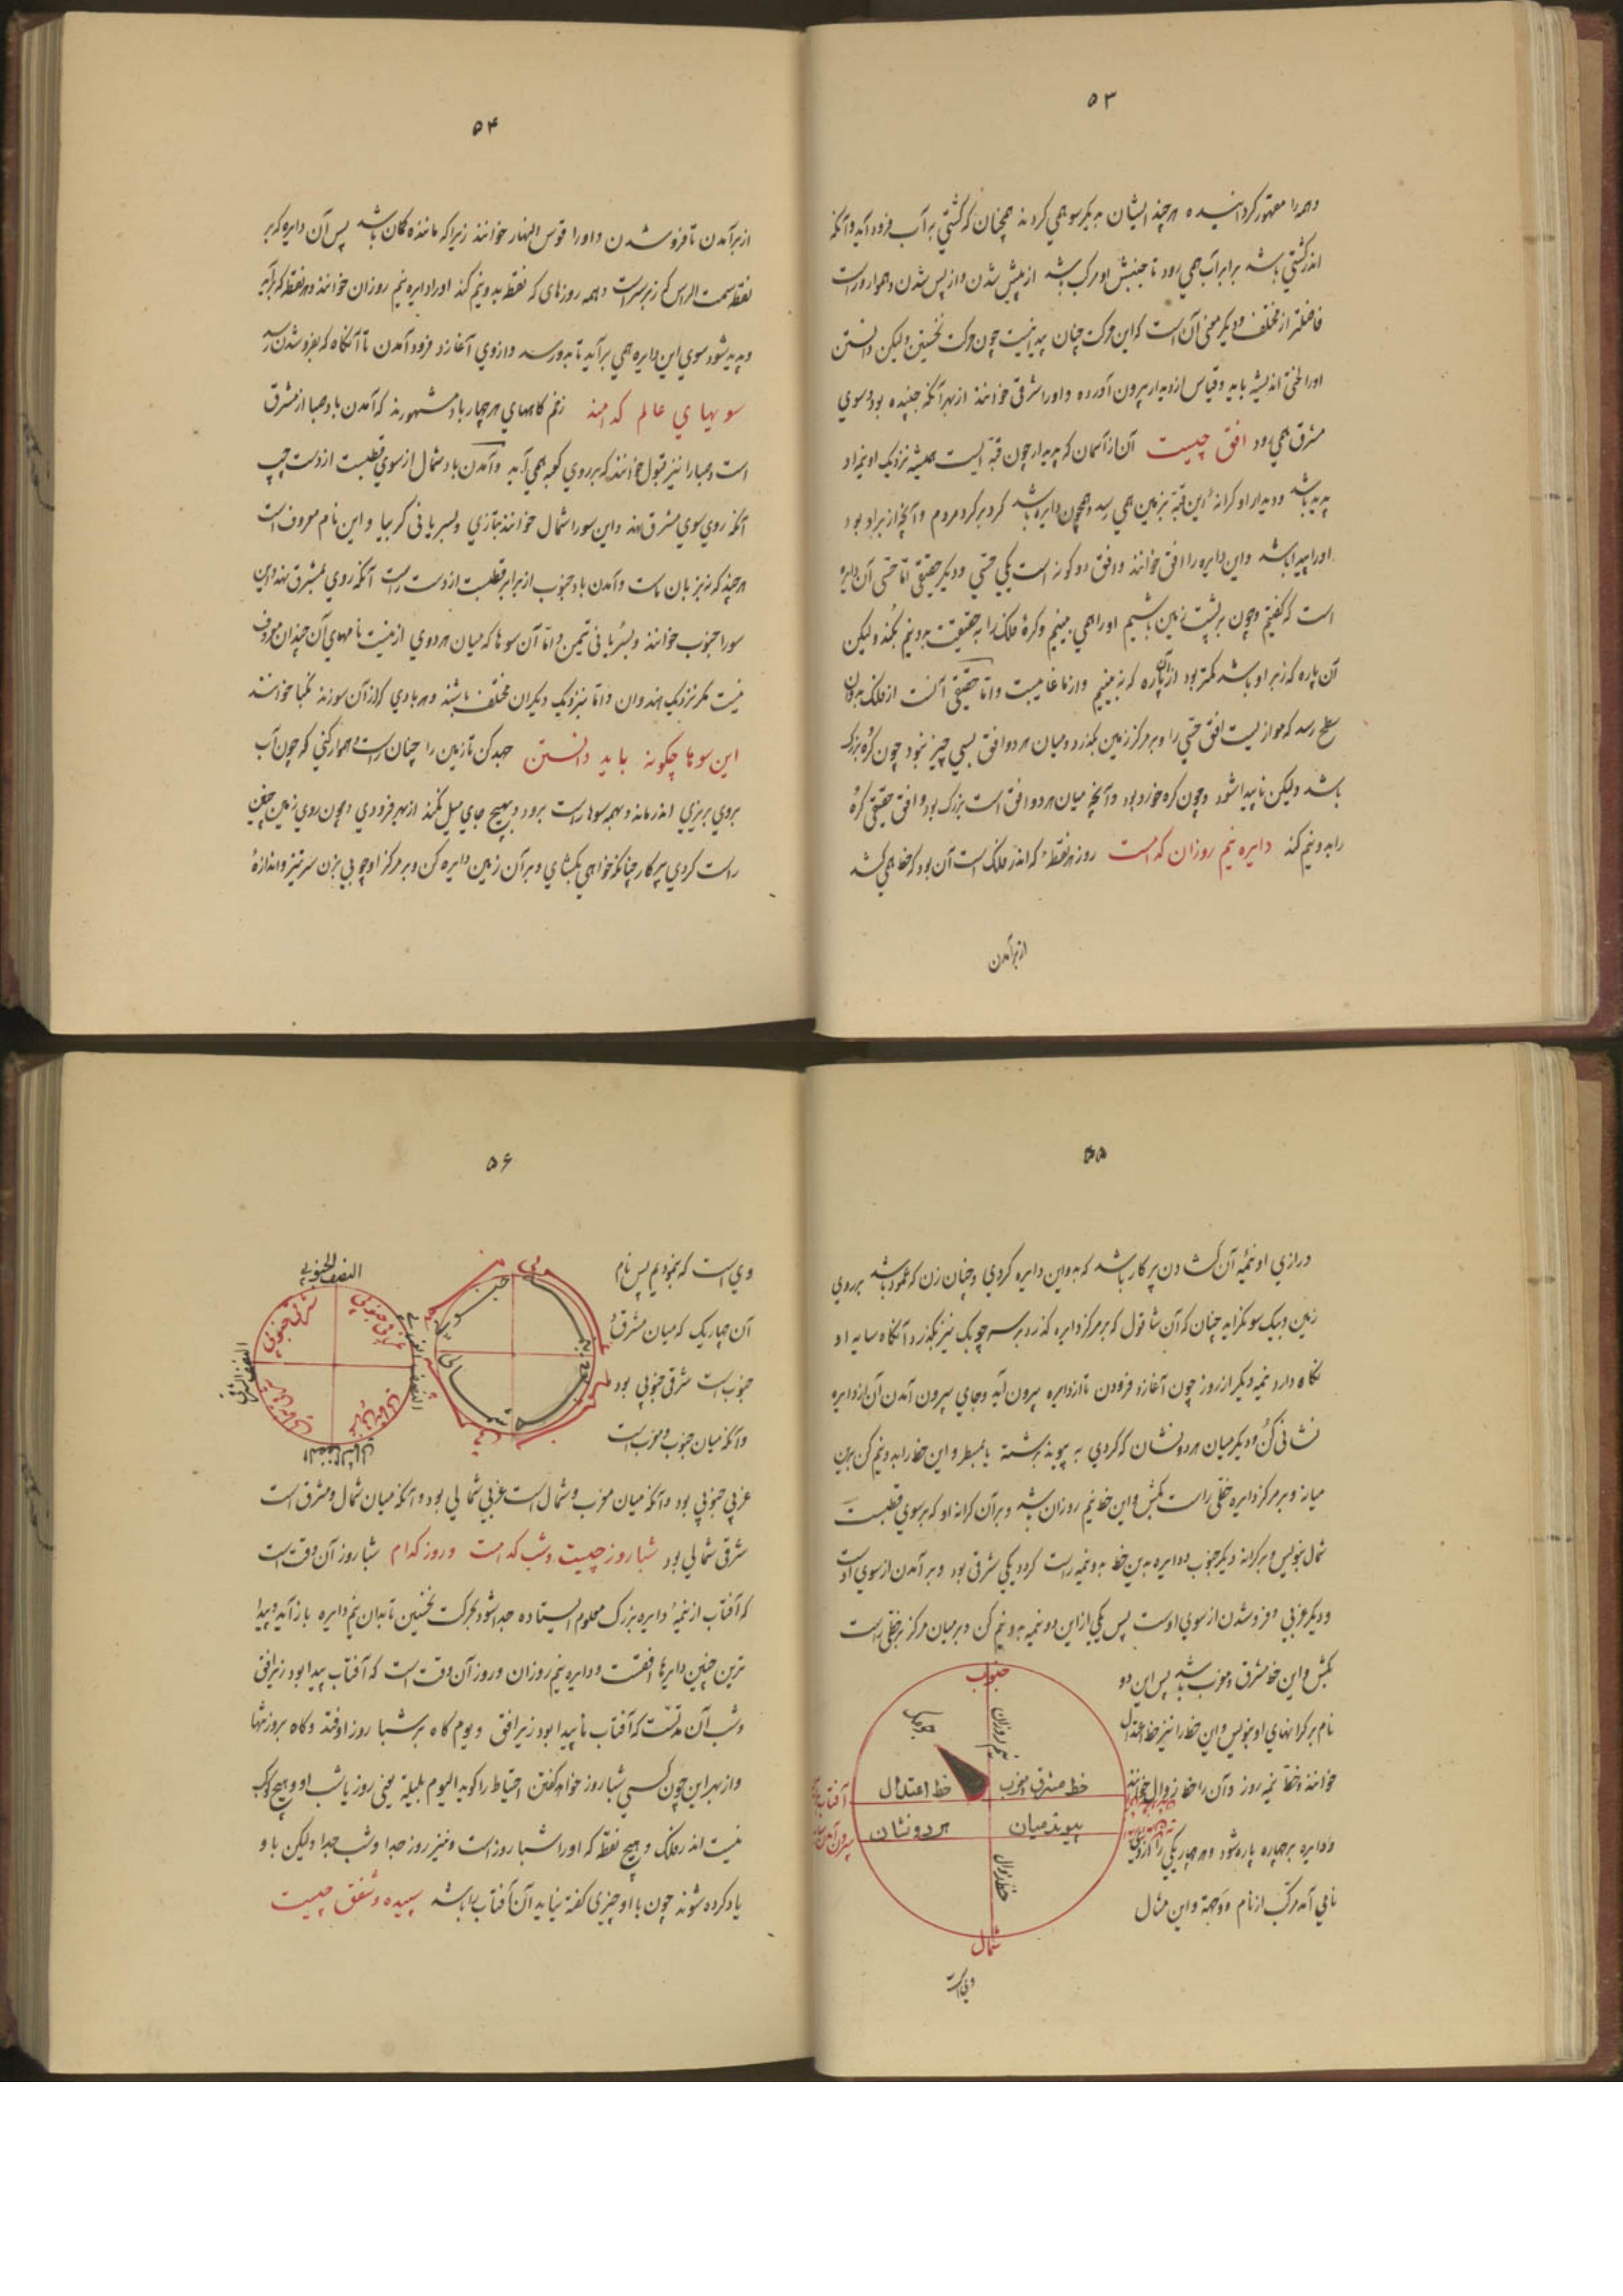 ۵۳
وهمه را مقهور گردانیده هرچند ایشان به یکسو همی گردند همچنان که کشتی بر آب فرود آید و آنکه
اندر کشتی باشد برابر آب همی رود تا جنبش او مرکب باشد از پیش شدن و از پس شدن و هموار و راست
فاضلتر از مختلف و دیگر معنی آن است که این حرکت چنان پیدا نیست چون حرکت نخستین ولیکن دانستن
او را لختی اندیشه باید و قیاس از دیدار بیرون آورده و او را شرقی خوانند از بهر آنکه جنبیده بود و سوی
مشرق همی رود افق چیست آن از آسمان که پدیدار چون قبه ایست همیشه نزدیک او نیمه او
پدید باشد و دیدار او کرانهٔ این قبه بزمین همی رسد و همچون دایره باشد گرد بر گرد مردم و آنچه از بر او بود
او را پیدا باشد و این دایره را افق خوانند و افق دو گونه است یکی حسی و دیگر حقیقی اما حسی آن دایره
است که گفتیم و چون بر پشت زمین باشیم او را همی بینیم و کرهٔ فلک را به حقیقت بدو نیم نکند ولیکن
آن پاره که زبر او باشد کمتر بود از آن پاره که نه بینیم و از ما غایبست و اما حقیقی آنست از فلک بدو آن
سطح رسد که موازیست افق حسی را و بر مرکز زمین بگذرد و میان هر دو افق بسی چیز نبود چون کره بزرگ
باشد ولیکن ناپیدا شود و چون کره خورد بود و آنچه میان هر دو افق است بزرگ بود و افق حقیقی کره
را بدو نیم کند دایره نیم روزان کدامست روز هر نقطهٔ که اندر فلک است آن بود که خط همی کشد
از برآمدن
۵۴
از برآمدن تا فرو شدن و او را قوس النهار خوانند زیرا که ماننده کمان باشد پس آن دایره که بر
نقطه سمت الراس که زبر سر است و همه روزهای که نقطه بدو نیم کند او را دایره نیم روزان خوانند و هر نقطه که برآید
و پدید شود سوی این دایره همی برآید تا بدو رسد و از وی آغازد فرود آمدن تا آنگاه که بفرو شدن رسد
سویهای عالم کدامند زخم گاههای هر چهار باد مشهورند که آمدن باد صبا از مشرق
است و صبا را نیز قبول خوانند که بر روی کعبه همی آید و آمدن باد شمال از سوی قطبست از دست چپ
آنکه روی سوی مشرق کند و این سو را شمال خوانند بتازی و بسریانی گربیا و این نام معروف است
هرچند که نه بزبان ماست و آمدن باد جنوب از برابر قطبست از دست راست آنکه روی بمشرق نهد و این
سو را جنوب خوانند و بسریانی تیمن و اما آن سوها که میان هر دوی ازینست نامهای آن چندان معروف
نیست مگر نزدیک هندوان و اما بنزدیک دیگران مختلف باشند و هر بادی که از آن سو زند نکبا خوانند
این سوها چگونه باید دانستن جهد کن تا زمین را چنان راست و هموار کنی که چون آب
بروی بریزی اندر ماند و بهمه سوها راست برود و بهیچ جای میل نکند از بهر فرودی و چون روی زمین چنین
راست کردی پرگار چنانکه خواهی بگشای و بر آن زمین دایره کن و بر مرکز او چوبی بزن سر تیز و اندازهٔ
۵۵
درازی او نیمهٔ آن گشادن پرگار باشد که بدو این دایره کردی و چنان زن که عمود باشد بر روی
زمین و بیک سو نگراید چنان که آن شاقول که بر مرکز دایره گذرد بر سر چوبک نیز بگذرد آنگاه سایه او
نگاه دارد نیمه دیگر از روز چون آغازد فزودن تا از دایره بیرون آید و جای بیرون آمدن آن از دایره
نشانی کن و دیگر میان هر دو نشان که کردی به پیوند برشته یا بمسطر و این خط را بدو نیم کن برین
میانه و بر مرکز دایره خطی راست بکش و این خط نیم روزان باشد و بر آن کرانه او که بر سوی قطبست
شمال بنویس و بر کرانه دیگر جنوب و دایره بدین خط بدو نیمه راست گردد یکی شرقی بود و برآمدن از سوی اوست
و دیگر غربی و فرو شدن از سوی اوست پس یکی از این دو نیمه بدو نیم کن و بر میان مرکز بر خطی راست
بکش و این خط مشرق و مغرب باشد پس این دو
نام بر کرانهای او بنویس و این خط را نیز خط اعتدال
خوانند و خط نیمه روز و آن را خط زوال خوانند
و دایره بر چهار پاره شود و هر چهار یکی را از وی
نامی آمد مرکب از نام دو جهة و این مثال
جنوب
چوبک
نیم روزان
خط مشرق و مغرب
خط اعتدال
پیوند میان
هر دو نشان
خط زوال
شمال
وی است
۵۶
وی است که نمودیم پس نام
آن چهار یک که میان مشرق و
جنوب است شرقی جنوبی بود
و آنکه میان جنوب و مغرب است
غربی جنوبی بود و آنکه میان مغرب و شمال است غربی شمالی بود و آنکه میان شمال و مشرق است
شرقی شمالی بود شباروز چیست و شب کدامست و روز کدام شباروز آن وقت است
که آفتاب از نیمهٔ دایره بزرگ معلوم ایستاده جدا شود بحرکت نخستین تا بدان نیم دایره باز آید و پیدا
ترین چنین دایرها افقست و دایره نیم روزان و روز آن وقت است که آفتاب پیدا بود زبر افق
و شب آن مدتست که آفتاب ناپیدا بود زیر افق و یوم گاه بر شباروز اوفتد و گاه بر روز تنها
و از بهر این چون کسی شباروز خواهد گفتن احتیاط را گوید الیوم بلیلته یعنی روز با شب او و هیچ کوکب
نیست اندر فلک و هیچ نقطه که او را شباروز است و نیز روز جدا و شب جدا ولیکن باو
یاد کرده شوند چون با او چیزی گفته نیاید آن آفتاب را باشد سپیده و شفق چیست
النصف الجنوبی
شرقی جنوبی
غربی جنوبی
النصف الشرقی
النصف الغربی